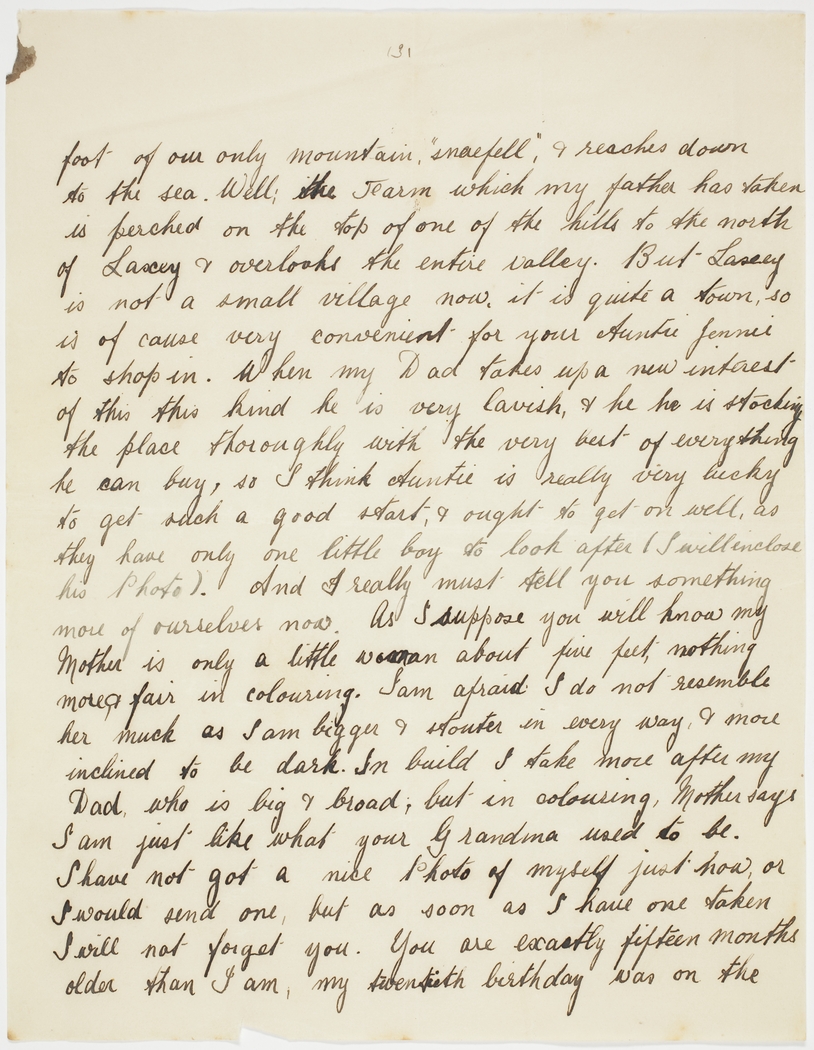 (3)
foot of our only mountain, "snaefell", & reaches down
to the sea. Well; the Fearm which my father has taken
is perched on the top of one of the hills to the north
of Laxey & overlooks the entire valley. But Laxey
is not a small village now, it is quite a town, so
is of cause very convenient for your Auntie Jennie
to shop in. When my Dad takes up a new interest
of this this kind he is very lavish, & he he is stocking
the place thoroughly with the very best of everything
he can buy, so I think Auntie is really very lucky
to get such a good start, & ought to get on well, as
they have only one little boy to look after (I will inclose
his Photo). And I really must tell you something
more of ourselves now. As I suppose you will know my
Mother is only a little woman about five feet, nothing
more, & fair in colouring. I am afraid I do not resemble
her much as I am bigger & stouter in every way, & more
inclined to be dark. In build I take more after my
Dad, who is big & broad, but in colouring, Mother says
I am just like what your Grandma used to be.
I have not got a nice Photo of myself just now, or
I would send one, but as soon as I have one taken
I will not forget you. You are exactly fifteen months
older than I am, my twentieth birthday was on the